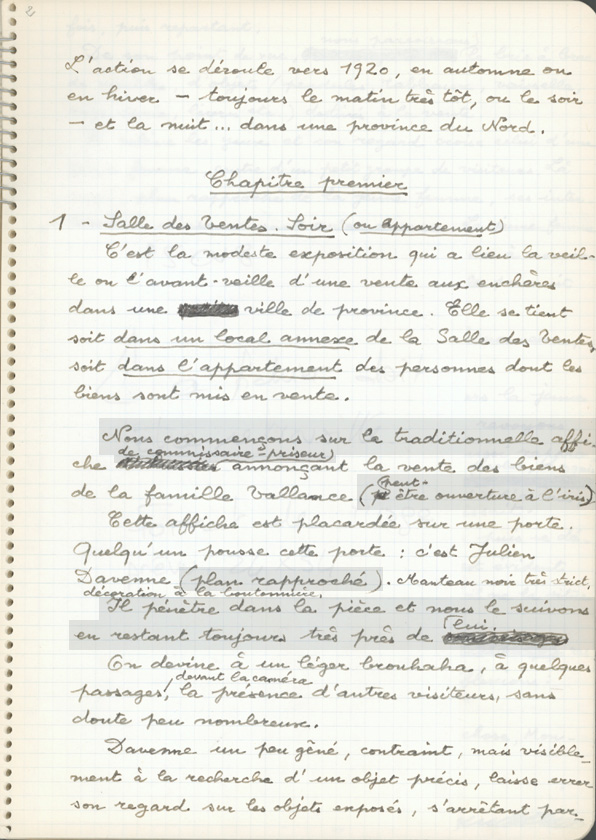 2
L'action se déroule vers 1920, en automne ou
en hiver – toujours le matin très tôt, ou le soir
– et la nuit... dans une province du Nord.
Chapitre premier
1 - Salle des Ventes. Soir (ou Appartement)
C'est la modeste exposition qui a lieu la veil-
le ou l'avant-veille d'une vente aux enchères
dans une ville de province. Elle se tient
soit dans un local annexe de la Salle des Ventes,
soit dans l'appartement des personnes dont les
biens sont mis en vente.
Nous commençons sur la traditionnelle affi-
de commissaire-priseur)
che annonçant la vente des biens
de la famille Vallance (peut-être ouverture à l'iris)
Cette affiche est placardée sur une porte.
Quelqu'un pousse cette porte : c'est Julien
Davenne (plan rapproché). Manteau noir très strict,
décoration à la boutonnière.
Il pénètre dans la pièce et nous le suivons
en restant toujours très près de lui.
On devine à un léger brouhaha, à quelques
passages, devant la caméra, la présence d'autres visiteurs, sans
doute peu nombreux.
Davenne un peu gêné, contraint, mais visible-
ment à la recherche d'un objet précis, laisse errer
son regard sur les objets exposés, s'arrêtant par-